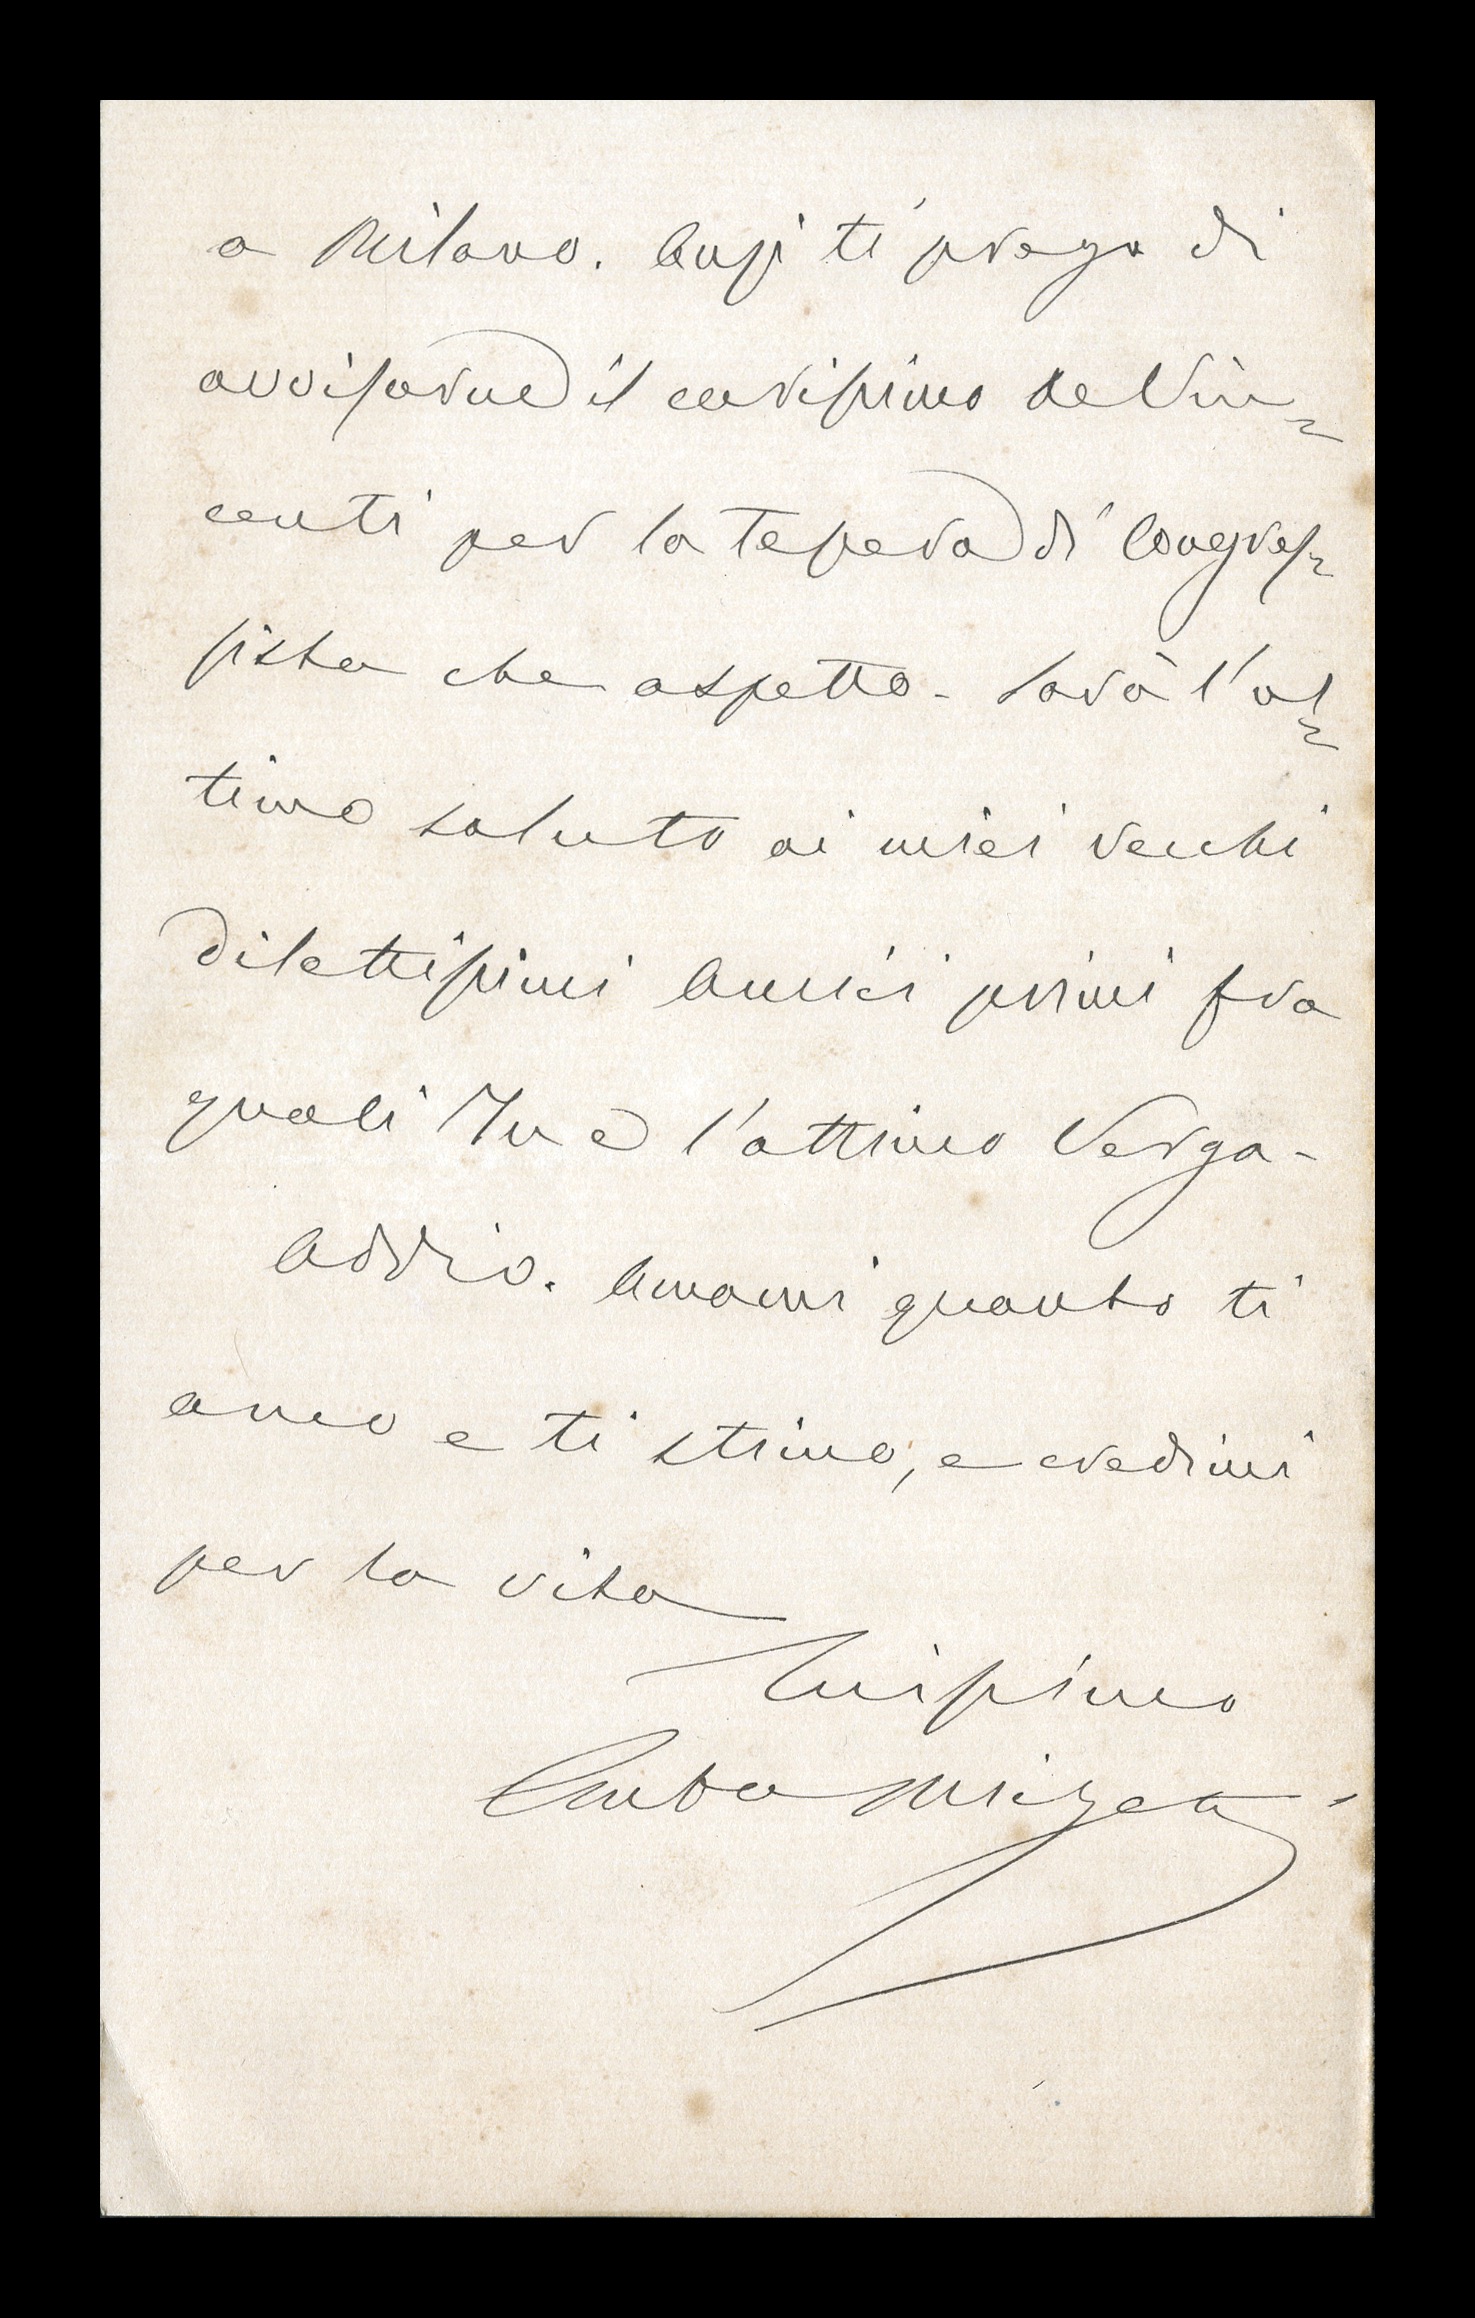 a Milano. Anzi ti prego di
avvisarne il carissimo De Vin-
centi per la tessera di Congres-
sista che aspetto - Sarà l'ul-
timo saluto ai miei vecchi
dilettissimi Amici primi fra
quali Tu e l'ottimo Verga -
Addio. Amami quanto ti
amo e ti stimo, e credimi
per la vita
Tuissimo